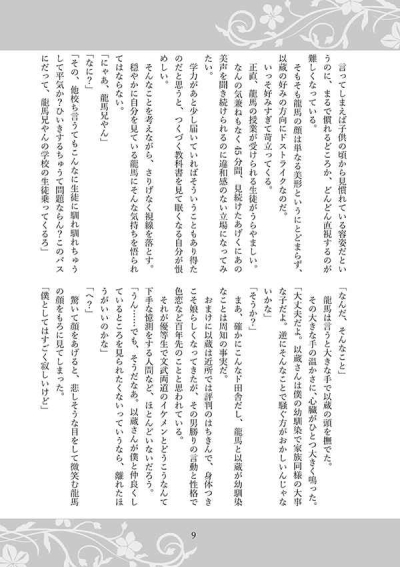 言ってしまえば子供の頃から見慣れている容姿だとい
うのに、まるで慣れるどころか、どんどん直視するのが
難しくなっている。
そもそも龍馬の顔は単なる美形というにとどまらず、
以蔵の好みの方向にドストライクなのだ。
いっそ好みすぎて苛立ってくる。
正直、龍馬の授業が受けられる生徒がうらやましい。
なんの気兼ねもなく45分間、見続けたあげくにあの
美声を聞き続けられるのに違和感のない立場になってみ
たい。
学力があと少し届いていればそういうこともあり得た
のだと思うと、つくづく教科書を見て眠くなる自分が恨
めしい。
そんなことを考えながら、さりげなく視線を落とす。
穏やかに自分を見ている龍馬にそんな気持ちを悟られ
てはならない。
「にゃあ、龍馬兄やん」
「なに?」
「その、他校ち言うてもこんなに生徒に馴れ馴れちゅう
して平気か?ひいきするちゅうて問題ならん?このバス
にだって、龍馬兄やんの学校の生徒乗ってくるろ」
「なんだ、そんなこと」
龍馬は言うと大きな手で以蔵の頭を撫でた。
その大きな手の温かさに、心臓がひとつ大きく鳴った。
「大丈夫だよ。以蔵さんは僕の幼馴染で家族同様の大事
な子だよ。逆にそんなことで騒ぐ方がおかしいんじゃな
いかな」
「そうか?」
まあ、確かにこんなド田舎だし、龍馬と以蔵が幼馴染
なことは周知の事実だ。
おまけに以蔵は近所では評判のはちきんで、身体つき
こそ娘らしくなってきたが、その男勝りの言動と性格で
色恋など百年先のことと思われている。
それが優等生で文武両道のイケメンとどうこうなんて
下手な憶測をする人間など、ほとんどいないだろう。
「うん……でも、そうだなあ。以蔵さんが僕と仲良くし
ているところを見られたくないっていうなら、離れたほ
うがいいのかな」
「へ?」
驚いて顔をあげると、悲しそうな目をして微笑む龍馬
の顔をもろに見てしまった。
「僕としてはすごく寂しいけど」
9